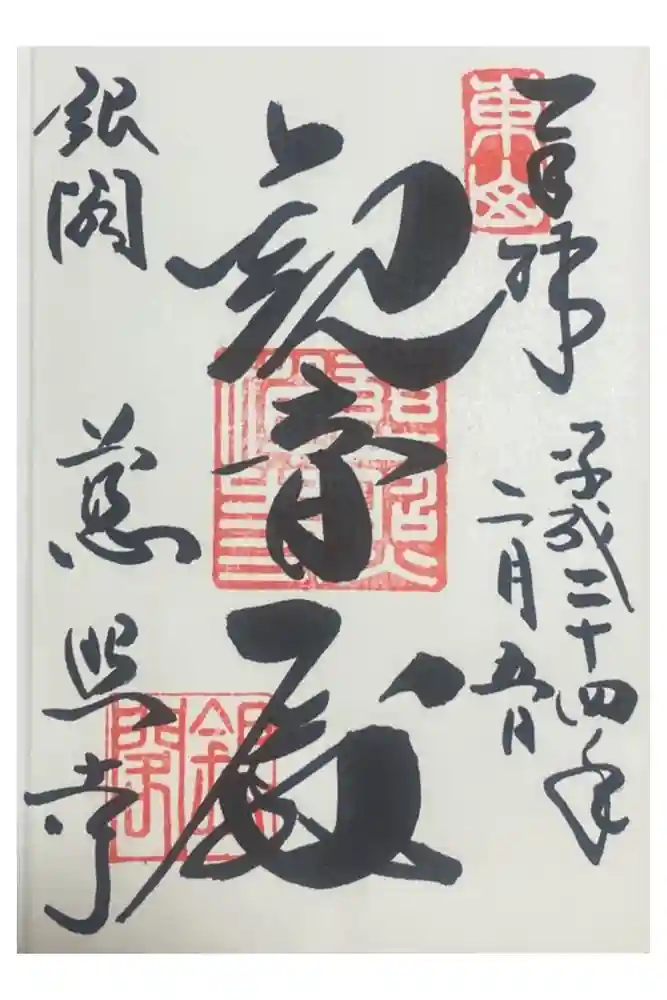 奉拝
東山
平成二十四年
二月五日
観音殿
銀閣
銀閣
慈照寺